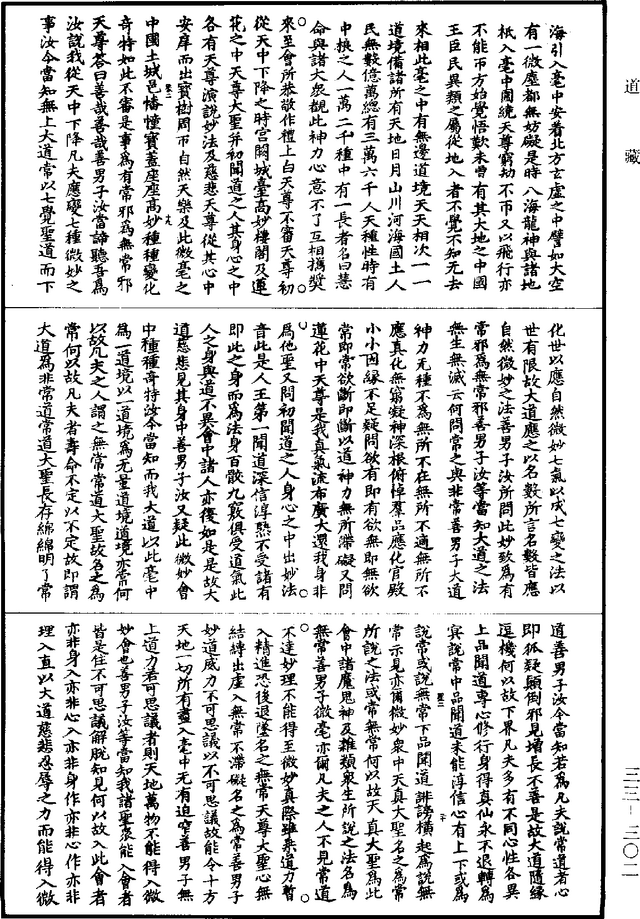 道藏
海引入毫中安着北方玄虛之中譬如大空
有一微塵都無妨礙是時八海龍神與諸地
祇入毫中圍繞天尊窮劫不帀又以飛行亦
不能帀方始覺悟歎未曾有其大地之中國
王臣民異類之屬從地入者不覺不知无去
來相此毫之中有無邊道境天天相次一一
道境備諸所有天地日月山川河海國土人
民無數億萬緫有三萬六千人天種性時有
中根之人一萬二千種中有一長者名曰慧
命與諸大衆覩此神力心意不了互相攜契
來至會所恭敬作禮上白天尊不審天尊初
從天中下降之時宮闕城臺高妙樓閣及蓮
花之中天尊大聖并初聞道之人其身心之中
各有天尊演說妙法及慈悲天尊從其心中
安庠而出寶樹周帀自然天樂及此微毫之
中國土城邑幡幢寶蓋座座高妙種種變化
奇特如此不審是事爲有常邪爲無常邪
天尊荅曰善哉善哉善男子汝當諦聽吾爲
汝說我從天中下降凡夫應變七種微妙之
事汝今當知無上大道常以七覺聖道而下
化世以應自然微妙七氣以成七變之法以
世有限故大道應之以名數所言名數皆應
自然微妙之法善男子汝所問此妙致爲有
常邪爲無常邪善男子汝等當知大道之法
無生無滅云何問常之與非常善男子大道
神力无種不爲無所不在無所不適無所不
應真化無窮凝神深根俯悼羣品應化官殿
小小因緣不足疑問欲有即有欲無即無欲
常即常欲斷即斷以道神力無所滯礙又問
蓮花中天尊是我真氣流布廣大還我身非
爲他聖又問初聞道之人身心之中出妙法
音此是人王第一聞道深信淳熟不受諸有
即此之身而爲法身百骸九竅俱受道氣此
人之身與道不異會中諸人亦復如是是故大
道慈悲見其身中善男子汝又疑此微妙會
中種種奇特汝今當知而我大道以此毫中
爲一道境以一道境爲无量道境道境亦當何
以故凡夫之人謂之無常常道大聖故名之爲
常何以故凡夫者壽命不定以不定故即謂
大道爲非常道常道大聖長存綿綿明了常
道善男子汝今當知若爲凡夫說常道者心
即狐疑顛倒邪見增長不善是故大道隨緣
逗機何以故下界凡夫多有不同心性各異
上品聞道專心修行身得真仙永不退轉爲
㝠說常中品聞道未能淳信心有上下或爲
說常或說無常下品聞道誹謗橫起爲說無
常示見亦爾微妙衆中天真大聖名之爲常
所說之法或常無常何以故天真大聖爲此
會中諸魔鬼神及雜類衆生所說之法名爲
無常善男子微毫亦爾凡夫之人不見常道
不達妙理不能得至微妙真際雖来道力暫
入精進恐後退墜名之無常天尊大聖心無
結縛出虛入無常不滯礙名之爲常善男子
妙道威力不可思議以不可思議故能令十方
天地一切所有盡入毫中无有迫窄善男子無
上道力若可思議者則天地萬物不能得入微
妙會也善男子汝等當知我諸聖衆能入會者
皆是住不可思議解脫知見何以故入此會者
亦非身入亦非心入亦非身作亦非心作亦非
理入直以大道慈悲忍辱之力而能得入微
三三-三〇二